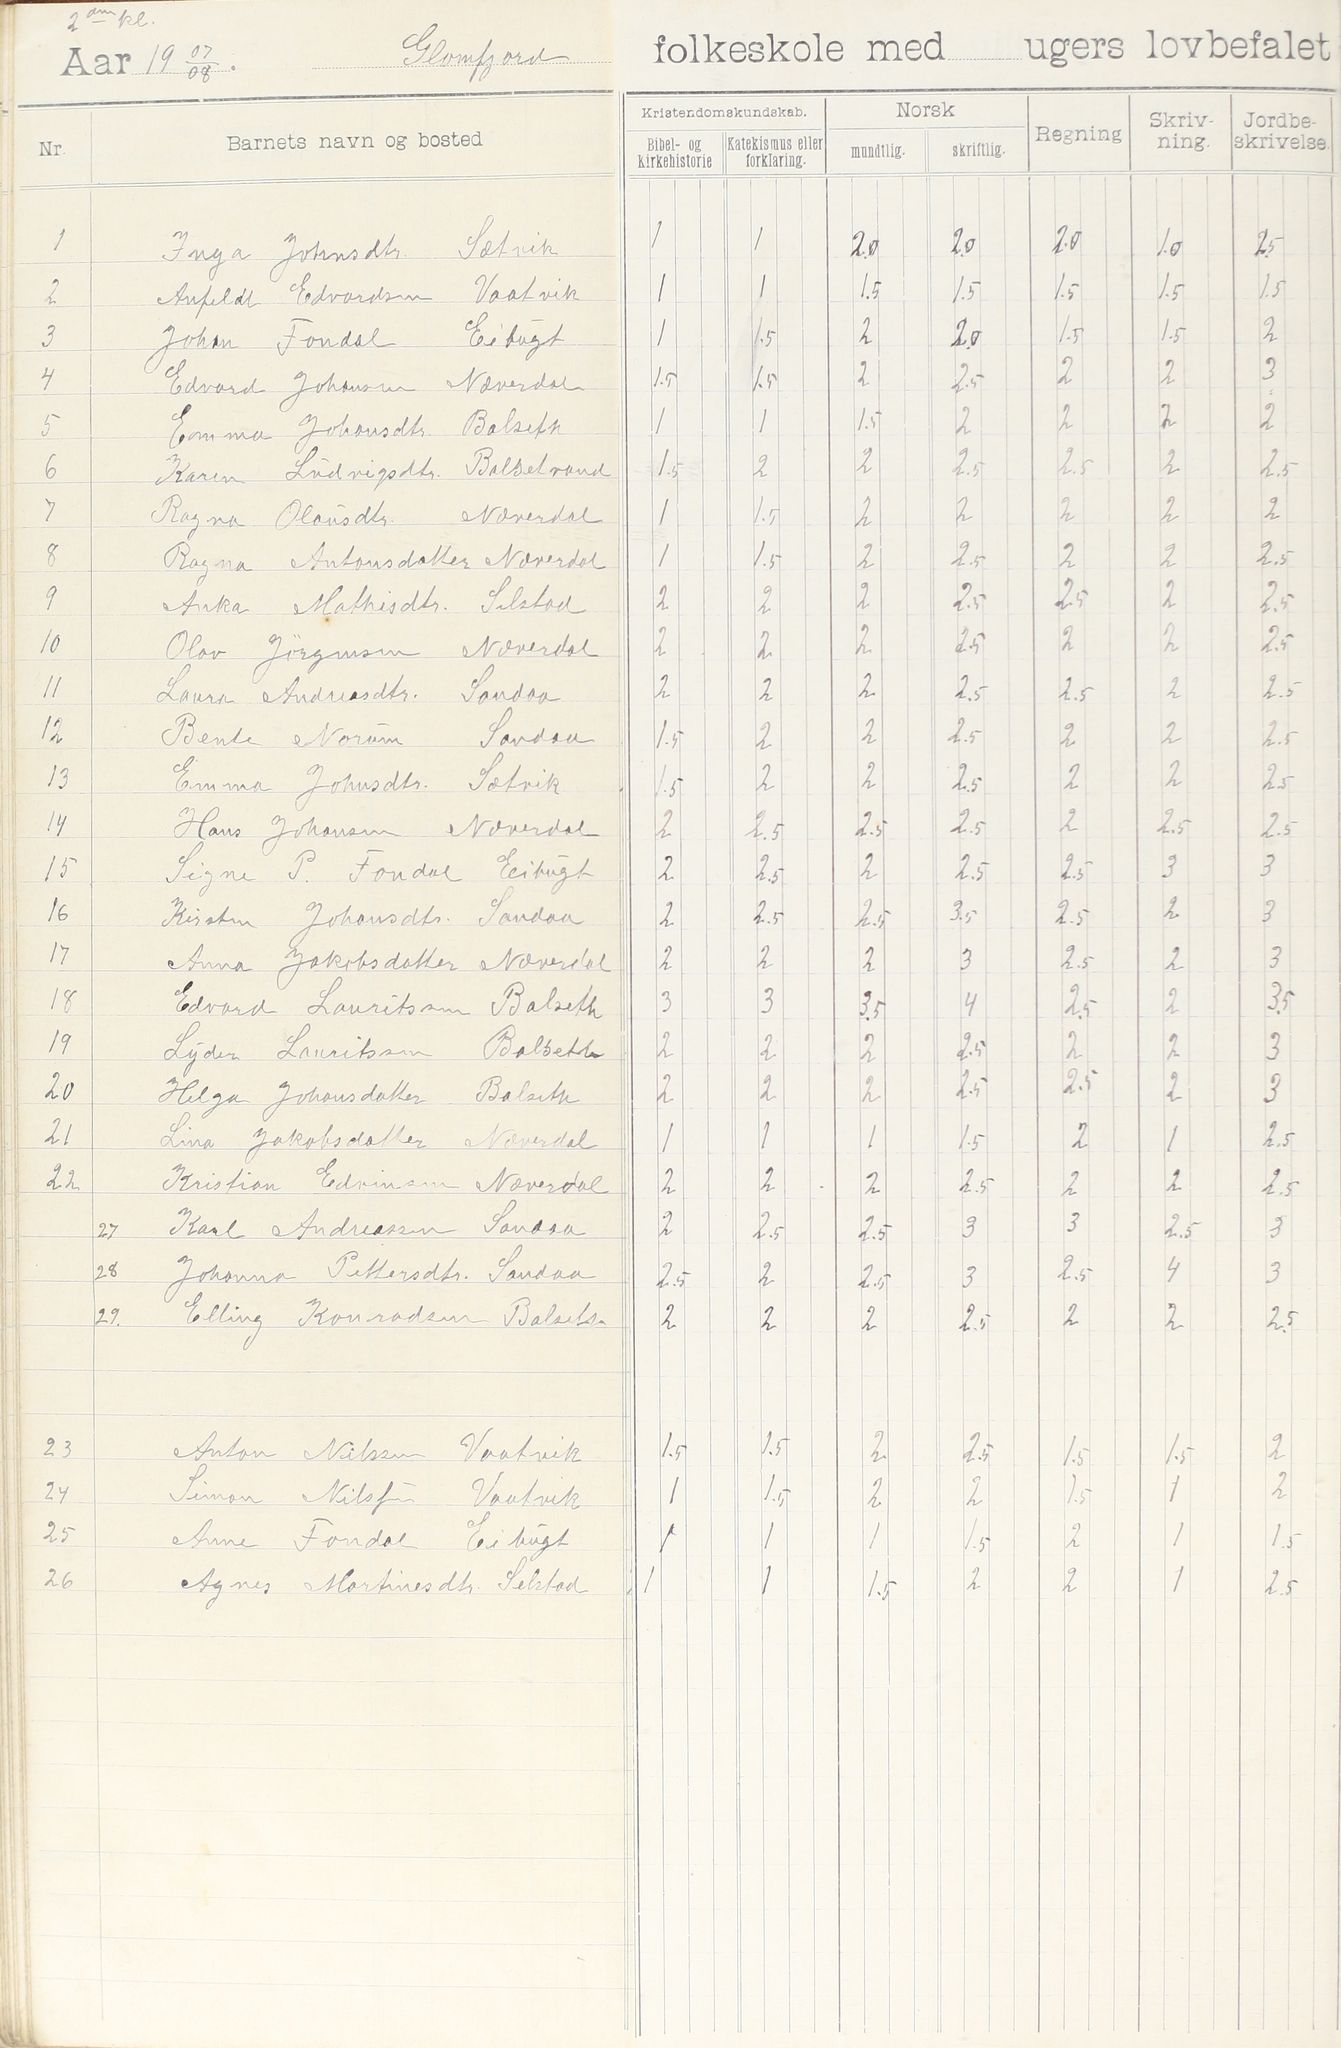 2den kl.
Aar 19 07/08. Glomfjord folkeskole med ugers lovbefalet
Nr. Barnets navn og bosted Kristendomskundskab. Norsk Regning Skriv-ning. Jordbe-skrivelse.
Bibel- og kirkehistorie Katekismus eller forklaring. mundtlig. skriftlig.
1 Inga Johnsdtr. Sætvik 1 1 2.0 2.0 2.0 1.0 2.5
2 Anfeldt Edvardsen Vaatvik 1 1 1.5 1.5 1.5 1.5 1.5
3 Johan Fondal Eibugt 1 1.5 2 2.0 1.5 1.5 2
4 Edvard Johansen Næverdal 1.5 1.5 2 2.5 2 2 3
5 Emma Johansdtr. Balseth 1 1 1.5 2 2 2 2
6 Karen Ludvigsdtr. Balsetvand 1.5 2 2 2.5 2.5 2 2.5
7 Ragna Olausdtr. Næverdal 1 1.5 2 2 2 2 2
8 Ragna Antonsdatter Næverdal 1 1.5 2 2.5 2 2 2.5
9 Anka Mathisdtr. Selstad 2 2 2 2.5 2.5 2 2.5
10 Olav Jörgensen Næverdal 2 2 2 2.5 2 2 2.5
11 Laura Andreasdtr. Sandaa 2 2 2 2.5 2.5 2 2.5
12 Bente Norum Sandaa 1.5 2 2 2.5 2 2 2.5
13 Emma Johnsdtr. Sætvik 1.5 2 2 2.5 2 2 2.5
14 Hans Johansen Næverdal 2 2.5 2.5 2.5 2 2.5 2.5
15 Signe P. Fondal Eeibugt 2 2.5 2 2.5 2.5 3 3
16 Kirsten Johansdtr. Sandaa 2 2.5 2.5 3.5 2.5 2 3
17 Anna Jakobsdatter Næverdal 2 2 2 3 2.5 2 3
18 Edvard Lauritssen Balseth 3 3 3.5 4 2.5 2 3.5
19 Lyder Lauritssen Balseth 2 2 2 2.5 2 2 3
20 Helga Johansdatter Balseth 2 2 2 2.5 2.5 2 3
21 Lina Jakobsdatter Næverdal 1 1 1 1.5 2 1 2.5
22 Kristian Edvinsen Næverdal 2 2 2 2.5 2 2 2.5
27 Karl Andreassen Sandaa 2 2.5 2.5 3 3 2.5 3
28 Johanna Pettersdtr. Sandaa 2.5 2 2.5 3 2.5 4 3
29. Elling Konradsen Balseth 2 2 2 2.5 2 2 2.5
23 Anton Nilssen Vaatvik 1.5 1.5 2 2.5 1.5 1.5 2
24 Simon Nilsſen Vaatvik 1 1.5 2 2 1.5 1 2
25 Anne Fondal Eibugt 1 1 1 1.5 2 1 1.5
26 Agnes Martinesdtr. Selstad 1 1 1.5 2 2 1 2.5